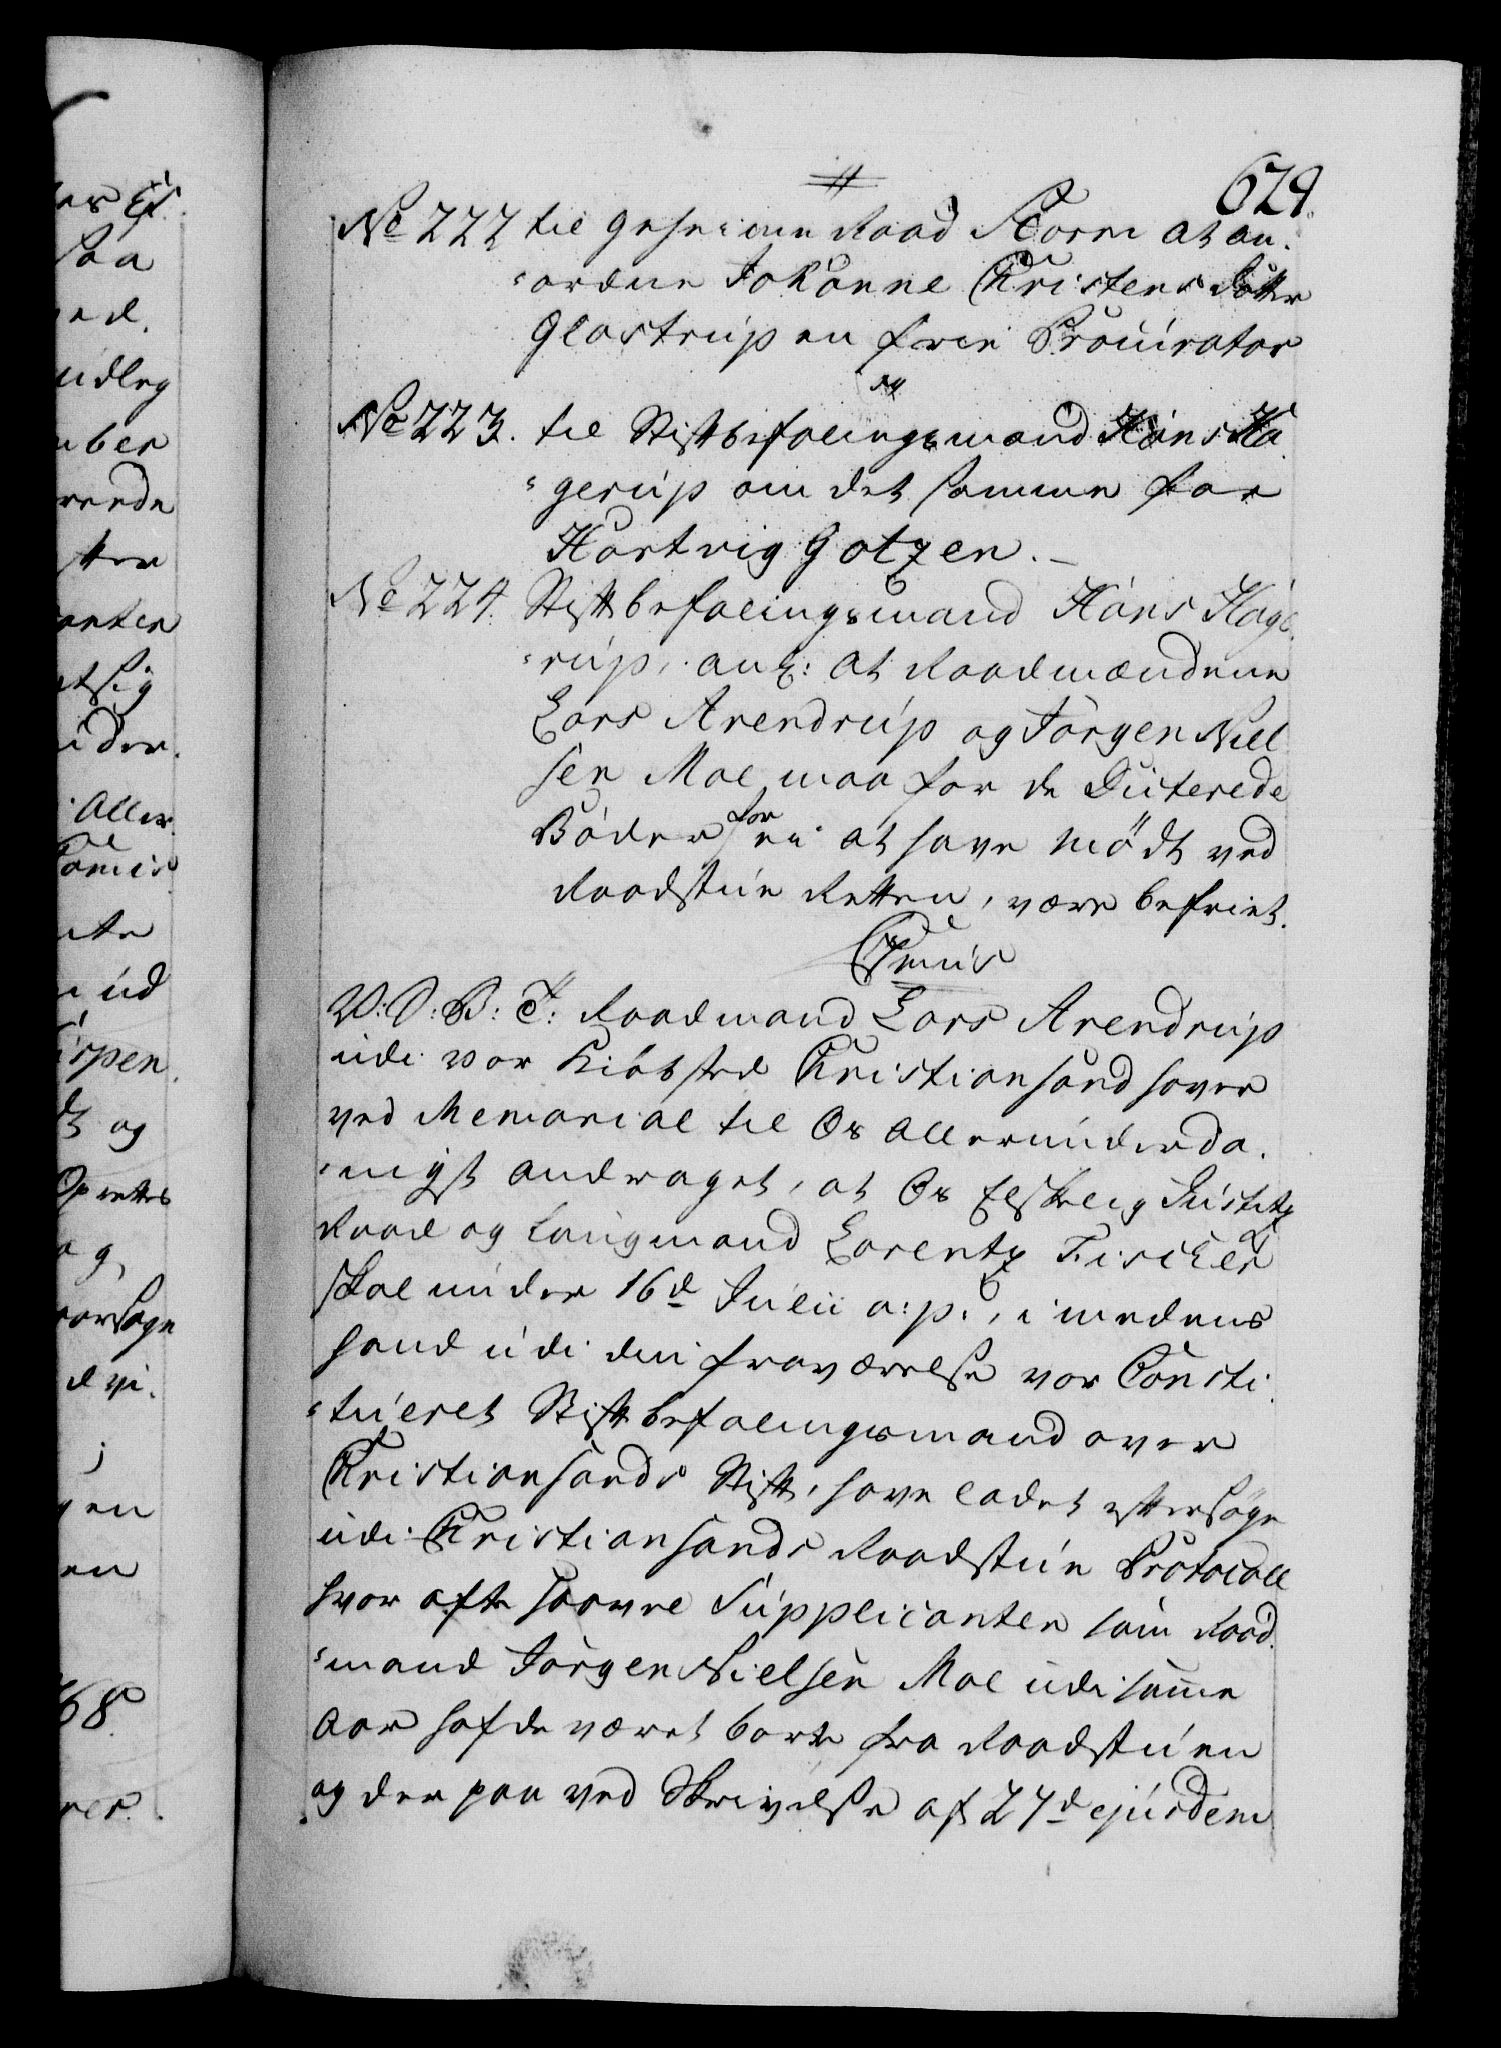 629.
No 222 til Geheime Raad Storm at an-
ordne Johanne Christens dotter
Glostrup en frei Procurator
og
No 223. til Stiftbefalingsmand Hans Ha-
gerup om det samme for
Hartvig Gotzen.
No 224. Stiftbefalingsmand Hans Hage-
rup, ang: at Raadmændene
Lars Arendrup og Jørgen Niel
sen Moe maa for de dicterede
Bøder for ei at have mødt ved
Raadstue Retten, være befriet.
Cmus
W: O: B: T: Raadmand Lars Arendrup
udi vor Kiøbsted Christiansand haver
ved Memorial til Os Allerunderda-
nigst andraget, at Os Elskelig Justitz
Raad og Laugmand Lorentz Fischer
skal under 16de Julii a: p:, imedens
hand udi din fraværelse var Consti-
tueret Stiftbefalingsmand over
Christiansands Stift, have ladet eftersøge
udi Christiansands Raadstue Protocoll
hvor ofte saavel Supplicanten som Raad-
mand Jørgen Nielsen Moe udi samme
Aar hafde været borte fra Raadstuen
og der paa ved Skrivelse af 27de ejusdem